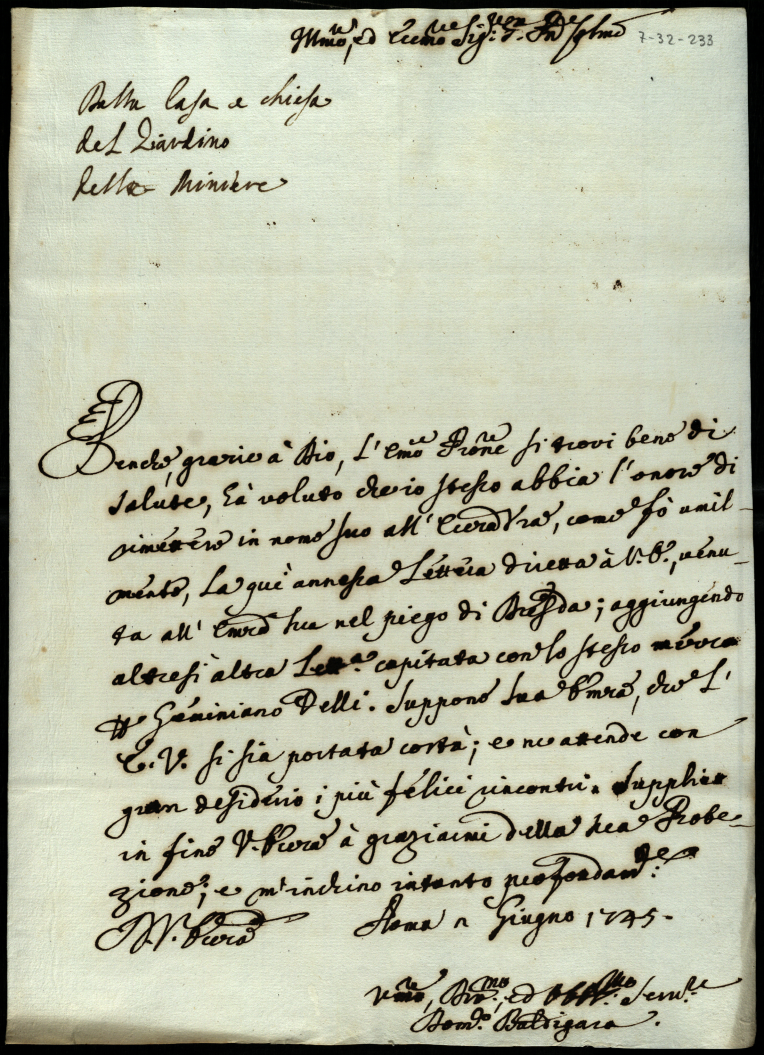 Illmo, ed Eccmo Sig:re
7-32-233
Dalla Casa e Chiesa
del Giardino
delle Miniere
Benche, grazie à Dio, l'Emo Prone si trovi bene di
salute, hà voluto che io stesso abbia l'onore di
rimettere in nome suo all'Eccza Vra, come fò umil-
mente, la quì annessa Lettera diretta à V. E., venu-
ta all'Emza Sua nel piego di Dresda; aggiungendo
altresì altra Lett.a capitata con lo stesso
Geminiano Delli. Suppone Sua Emza, che l'
E. V. si sia portata costà; e ne attende con
gran desiderio i più felici incontri. Supplico
in fine V. Eccza à graziarmi della sua Prote-
zione; e m'inchino intanto profondam:te
Di V. Eccza Roma Giugno 1745.
Vmo, Divmo, ed Serv:re
Dom:co Baldigara.